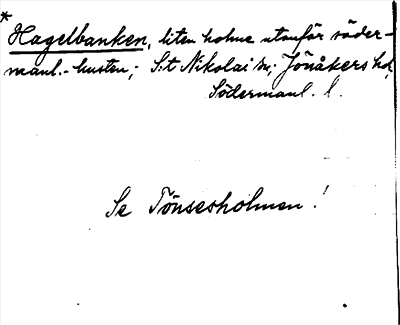 * Hagelbanken, liten holme utanför söder-
manl.-kusten; S:t Nikolai sn; Jönåkers hd,
Södermanl. l.
Se Tönsesholmen!